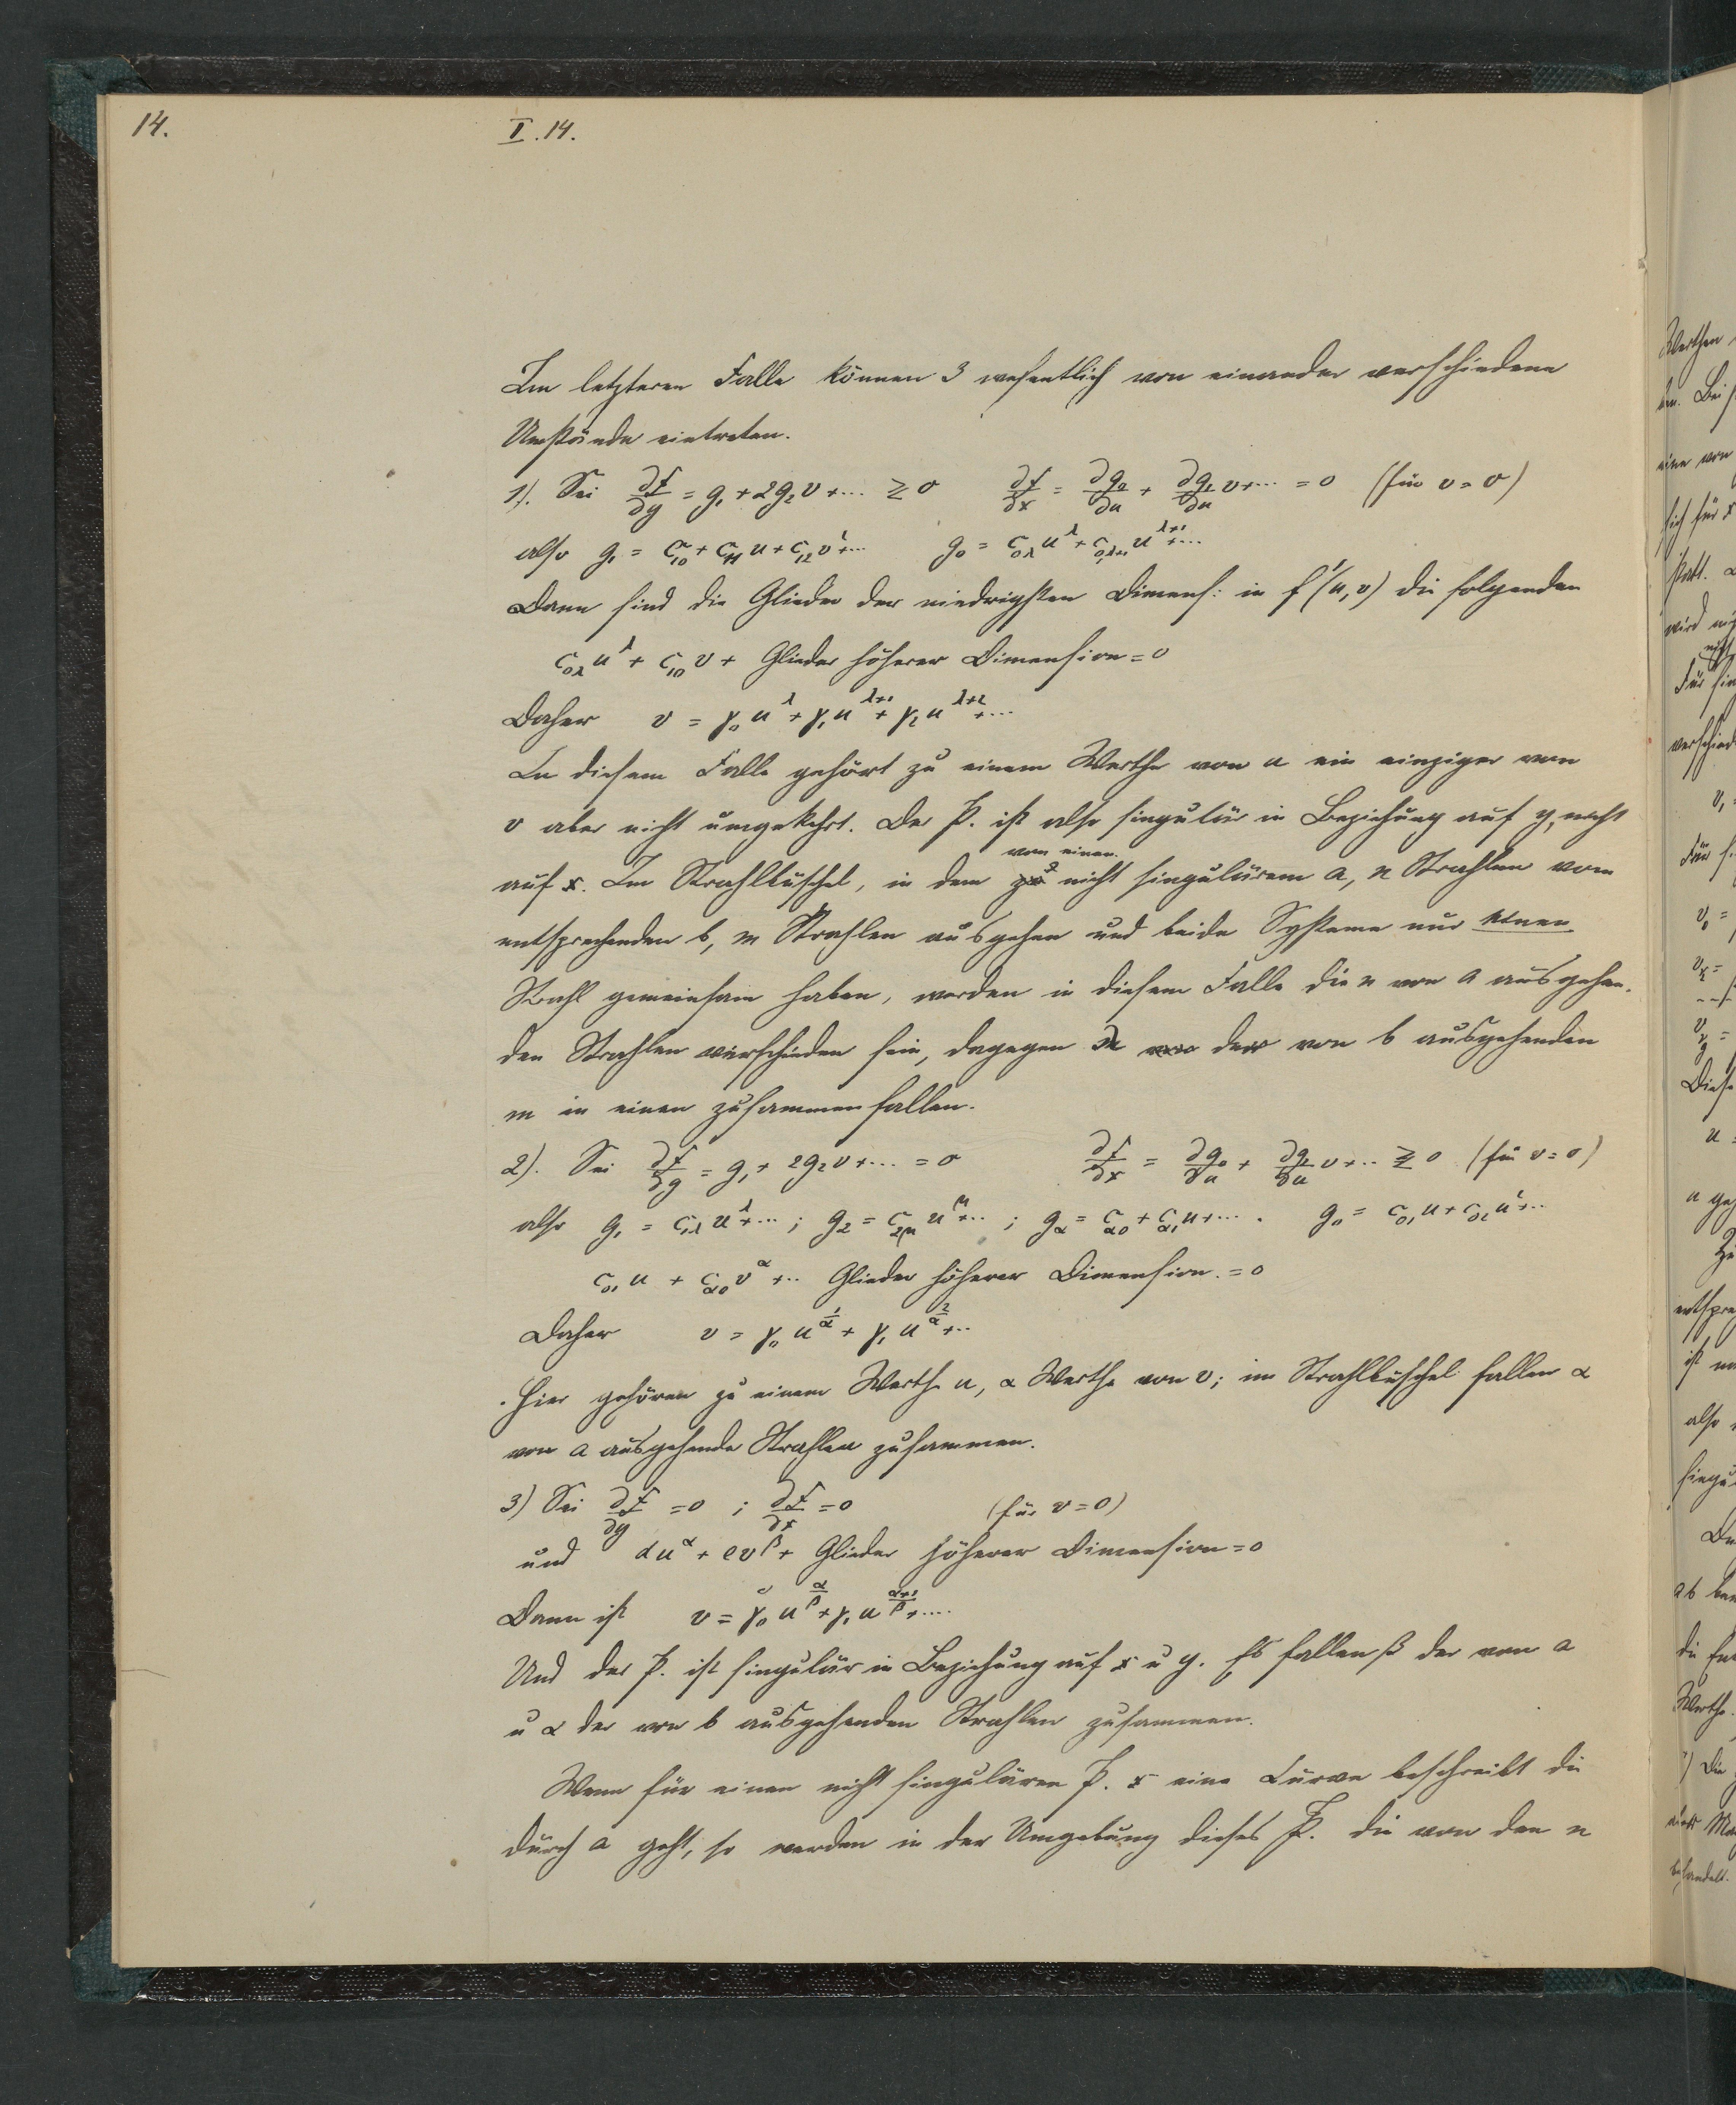 14.
I. 14.
Im letzteren Falle können 3 wesentlich von einander verschiedene
Umstände eintreten.
1). Sei ∂f/∂y = g₁ + 2g₂v + ... ≷ 0 ∂f/∂x = ∂g₀/∂u + ∂g₁/∂u v + ... = 0 (für v = 0)
also g₁ = c₁₀ + c₁₁u + c₁₂v² + ... g₀ = c₀λ u^λ + c₀,λ+1 u^(λ+1) + ...
Dann sind die Glieder der niedrigsten Dimens: in f'(u, v) die folgenden
c₀λ u^λ + c₁₀ v + Glieder höherer Dimension = 0
Daher v = γ₀ u^λ + γ₁ u^(λ+1) + γ₂ u^(λ+2) + ...
In diesem Falle gehört zu einem Werthe von u ein einziger von
v aber nicht umgekehrt. Der P. ist also singulär in Beziehung auf y, nicht
auf x. Im Strahlbüschel, in dem von einem nicht singulärem a, n Strahlen vom
entsprechenden b, m Strahlen ausgehen und beide Systeme nur einen
Strahl gemeinsam haben, werden in diesem Falle die n von a ausgehen-
den Strahlen verschieden sein, dagegen λ der von b ausgehenden
m in einen zusammenfallen.
2). Sei ∂f/∂y = g₁ + 2g₂v + ... = 0 ∂f/∂x = ∂g₀/∂u + ∂g₁/∂u v + ... ≷ 0 (für v = 0)
also g₁ = c₁λ u^λ + ... ; g₂ = c₂μ u^μ + ... ; gα = cα₀ + cα₁u + ... . g₀ = c₀₁u + c₀₂u² + ...
c₀₁ u + cα₀ v^α + ... Glieder höherer Dimension. = 0
Daher v = γ₀ u^(1/α) + γ₁ u^(2/α) + ...
Hier gehören zu einem Werthe u, α Werthe von v; im Strahlbüschel fallen α
von a ausgehende Strahlen zusammen.
3) Sei ∂f/∂y = 0 ; ∂f/∂x = 0 (für v = 0)
und du^α + ev^β + Glieder höherer Dimension = 0
Dann ist v = γ₀ u^(α/β) + γ₁ u^((α+1)/β) + ....
Und der P. ist singulär in Beziehung auf x u y. Es fallen β der von a
u α der von b ausgehenden Strahlen zusammen.
Wenn für einen nicht singulären P. x eine Curve beschreibt die
durch a geht, so werden in der Umgebung dieses P. die von den n